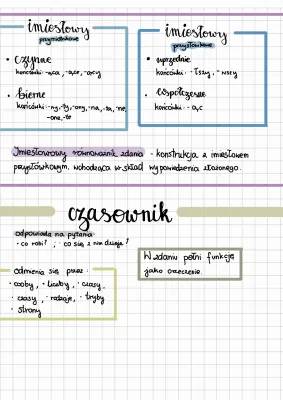 imiesłowy
przymiotnikowe
• czynne
końcówki: -ąca, -ące, -ący
• bierne
końcówki: -ny, -ty, -ony, -na, -ta, -ne,
-one, -te
imiesłowy
przysłówkowe
• uprzednie
końcówki: -łszy, -wszy
• współczesne
końcówki: -ąc
Imiesłowowy równoważnik zdania - konstrukcja z imiesłowem
przysłówkowym, wchodząca w skład wypowiedzenia złożonego.
czasownik
odpowiada na pytania
• co robi? ; • co się z nim dzieje?
odmienia się przez:
• osoby, • liczby, • czasy,
• czasy, • rodzaje, • tryby
• strony
W zdaniu pełni funkcję
jako orzeczenie.